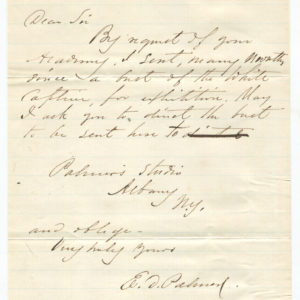 Dear Sir
By request of your
Academy, I sent, many Months
since a bust of the White
Captive, for exhibition. May
I ask you to direct the bust
to be sent here to
Palmer's Studio
Albany
N.Y.
and oblige-
Very truly yours
E. D. Palmer.